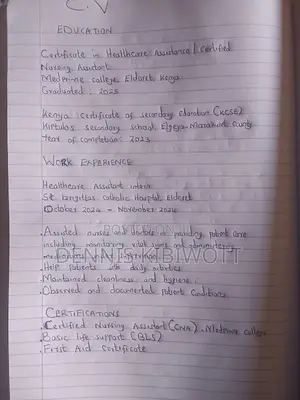 C.V
EDUCATION
Certificate in Healthcare Assistance / Certified
Nursing Assistant
Medprime college Eldoret Kenya
Graduated : 2025
Kenya Certificate of secondary Education (KCSE)
secondary school Elgeyo-Marakwet County
Year of completion: 2023
WORK EXPERIENCE
Healthcare Assistant intern
St. Catholic Hospital Eldoret
October 2024 - November 2024
. Assisted nurses and doctors in providing patient care
including monitoring vital signs and administering
medications
. Help patients daily
. Maintained cleanliness and hygiene
. Observed and documented patient conditions.
DENNIS K BIWOTT
CERTIFICATIONS
. Certified Nursing Assistant (CNA) - Medprime college
. Basic life support (BLS)
. First Aid Certificate